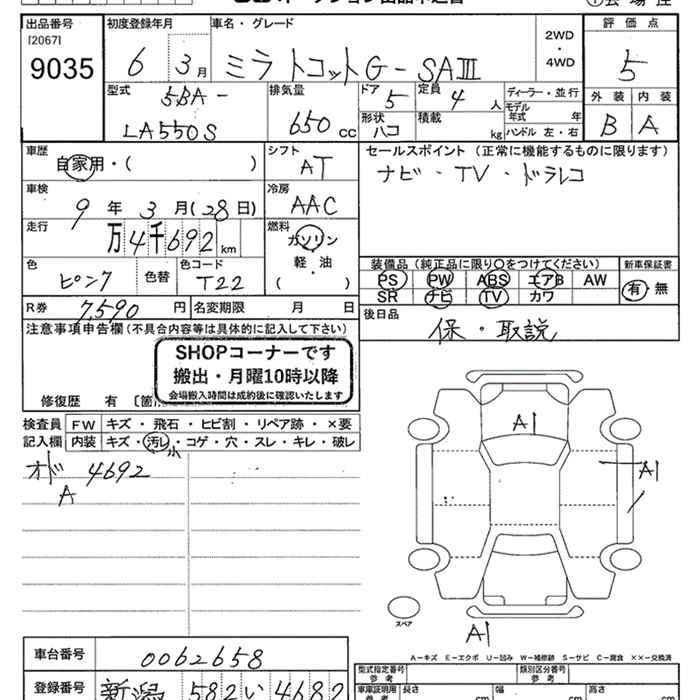 出品番号 初度登録年月 車名・グレード 評価点
[2067]
9035 6 3月 ミラトコットG-SAⅢ 2WD・4WD 5
型式 排気量 ドア 定員 ディーラー・並行 外装 内装
5BA- 5 4人 モデル年式 年
LA550S 650cc 形状 ハコ 積載 kg ハンドル 左・右 B A
車歴 シフト セールスポイント (正常に機能するものに限ります)
自家用・( ) AT ナビ・TV・ドラレコ
車検 冷房
9年3月(28日) AAC
走行 燃料
万4千692km ガソリン
軽・油
( )
色 色替 色コード 装備品(純正品に限り○をつけてください) 新車保証書
ピンク T22 PS PW ABS エアB AW 有 無
SR ナビ TV カワ
R券 7,590円 名変期限 月 日 後日品
保・取説
注意事項申告欄(不具合内容等は具体的に記入して下さい)
SHOPコーナーです
搬出・月曜10時以降
会場搬入時間は成約後に確認いたします
修復歴 有 〔箇
検査員 FW キズ・飛石・ヒビ割・リペア跡・×要
記入欄 内装 キズ・汚レ・コゲ・穴・スレ・キレ・破レ
小
オド 4692
A
A1
A1
スペア
A1
A−キズ E−エクボ U−凹み W−補修跡 S−サビ C−腐食 ××−交換済
車台番号 0062658 型式指定番号 参考 類別区分番号 参考
登録番号 新潟 582 い 4682 車庫証明用 参考 長さ cm 幅 cm 高さ cm